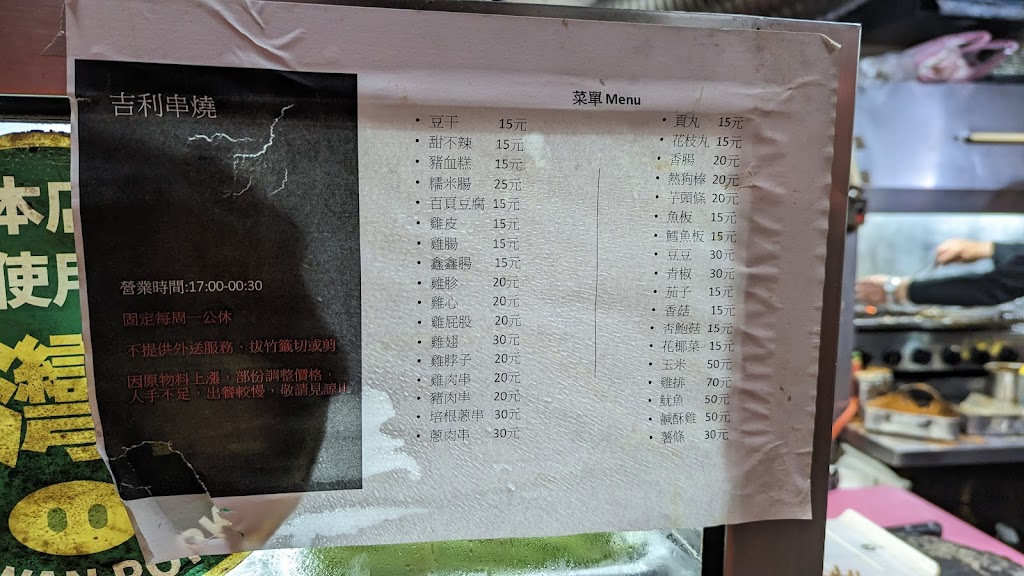 吉利串燒
營業時間:17:00-00:30
固定每周一公休
不提供外送服務、拔竹籤切或剪
因原物料上漲，部份調整價格，
人手不足，出餐較慢，敬請見諒
菜單 Menu
• 豆干 15元
• 甜不辣 15元
• 豬血糕 15元
• 糯米腸 25元
• 百頁豆腐 15元
• 雞皮 15元
• 雞腸 15元
• 鑫鑫腸 15元
• 雞胗 20元
• 雞心 20元
• 雞屁股 20元
• 雞翅 30元
• 雞脖子 20元
• 雞肉串 20元
• 豬肉串 20元
• 培根蔥串 30元
• 蔥肉串 30元
• 貢丸 15元
• 花枝丸 15元
• 香腸 20元
• 熱狗棒 20元
• 芋頭條 20元
• 魚板 15元
• 鱈魚板 15元
• 豆豆 30元
• 青椒 30元
• 茄子 15元
• 香菇 15元
• 杏鮑菇 15元
• 花椰菜 15元
• 玉米 50元
• 雞排 70元
• 魷魚 50元
• 鹹酥雞 50元
• 薯條 30元
本店
使用